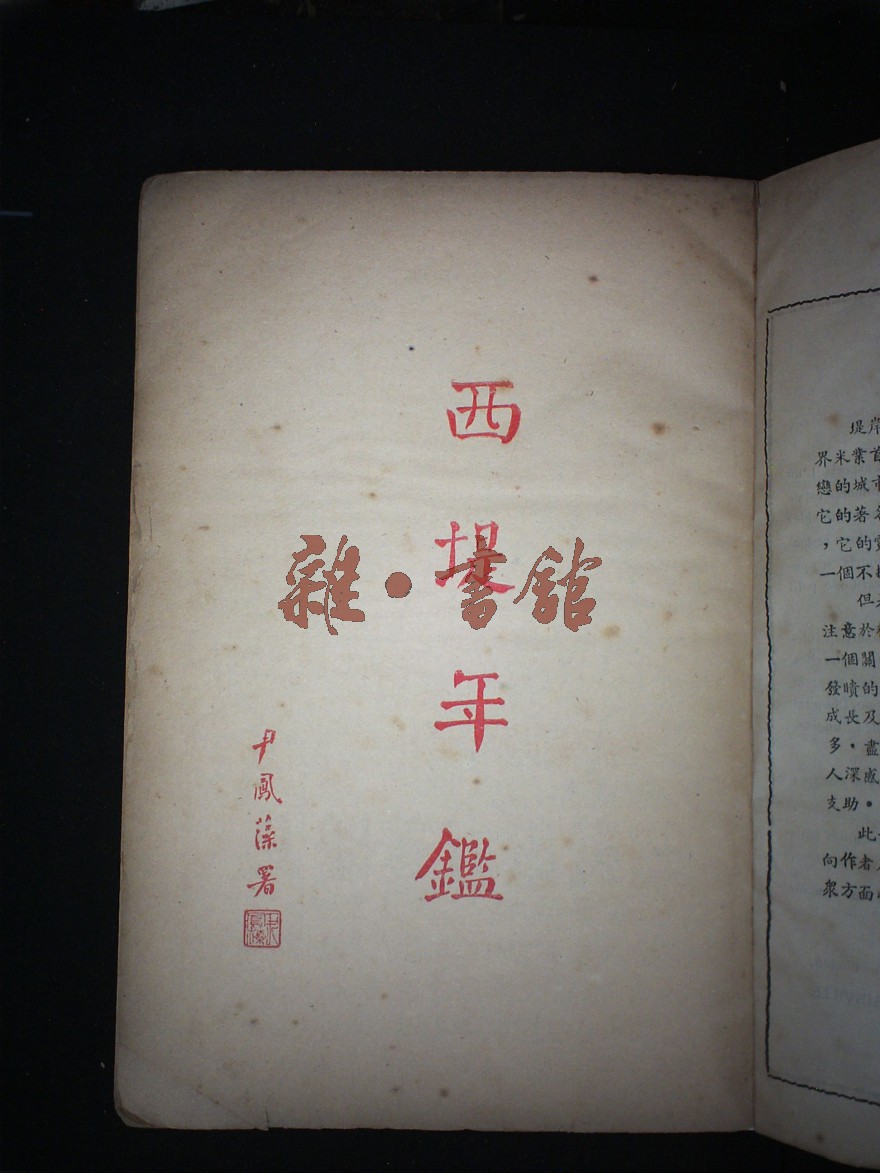 西堤年鑑
尹鳳藻署
雜·書館
堤岸
界米業首
戀的城市
它的著名
,它的
一個不
但
注意於
一個關
發憤的
成長及
多·盡
人深感
支助·
此
向作者
衆方面